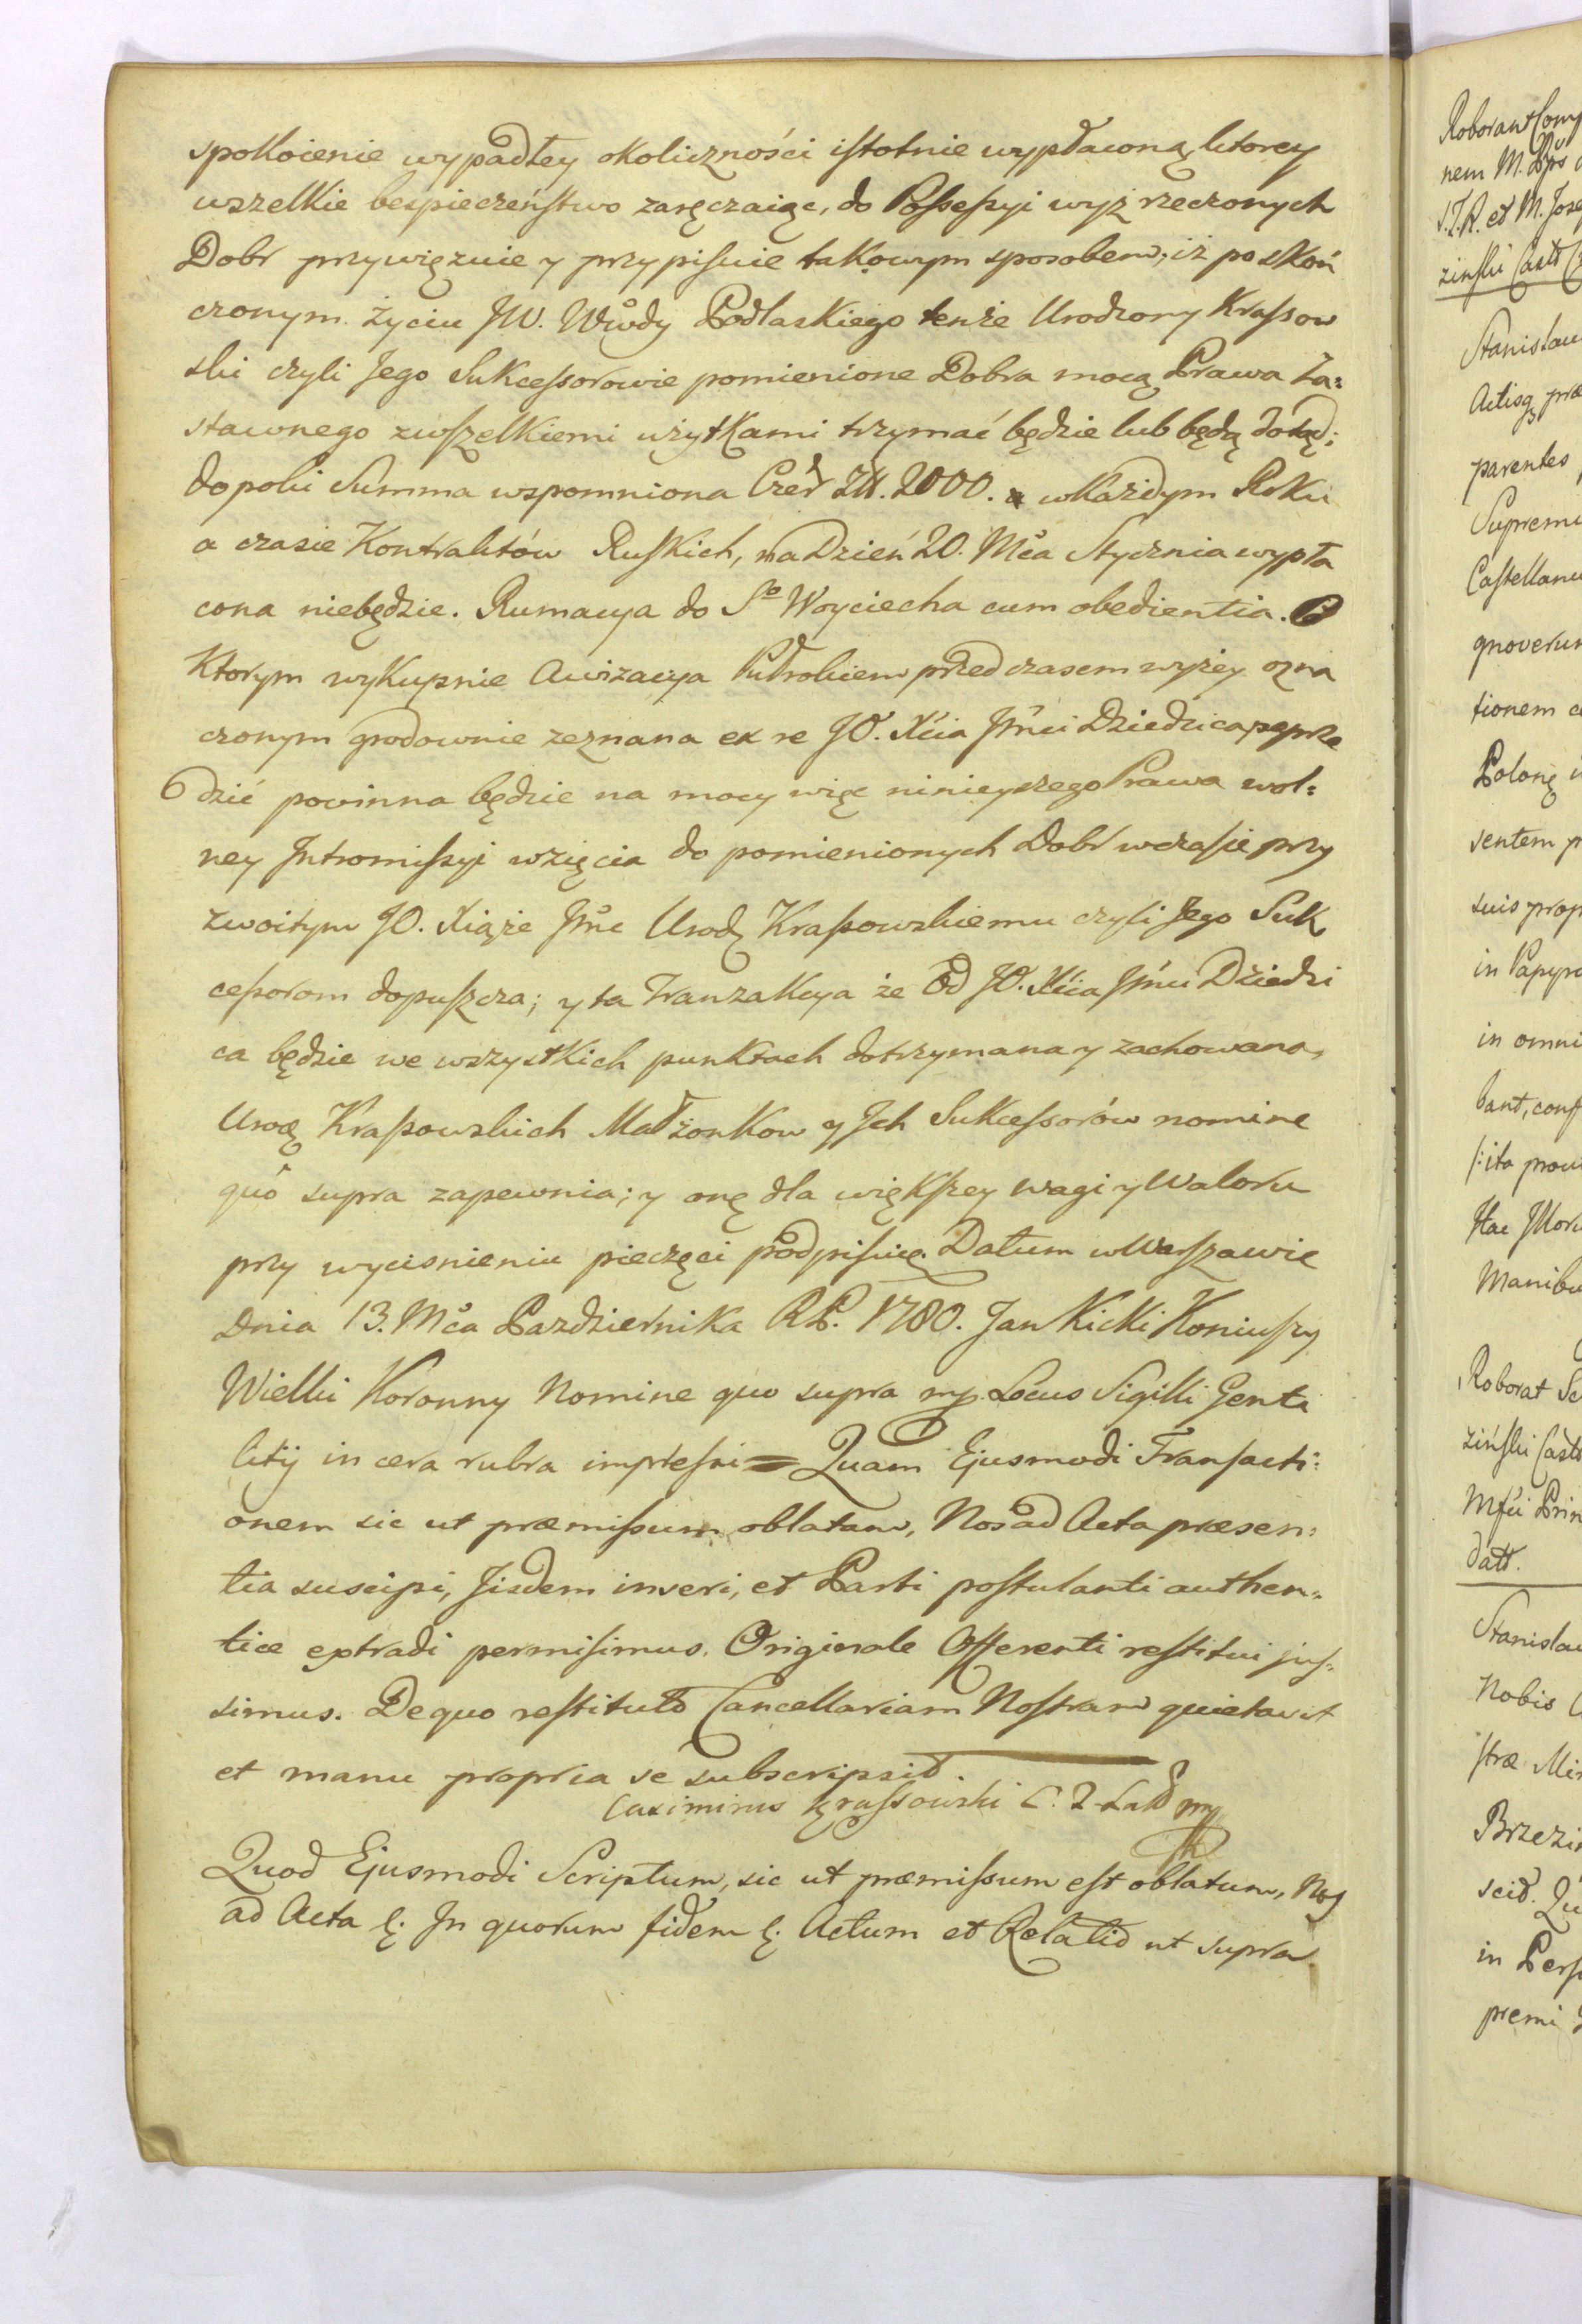 spokoienie wypadłey okoliczności istotnie wypłaconą ktorey
wszelkie bespieczeństwo zaręczaiąc, do Possessyi wyż rzeczonych
Dobr przywięzuie y przypisuie takowym sposobem; iż po skoń
czonym życiu JW. Wwdy Podlaskiego tenże Urodzony Krassow
ski czyli Jego Sukcessorowie pomienione Dobra mocą Prawa Za:
stawnego zwszelkiemi użytkami trzymać będzie lub będą dotąd;
dopoki Summa wspomniona Czer Zł. 2000. w każdym Roku
a czasie Kontraktów Ruskich, na Dzień 20. Mca Stycznia wypła
cona niebędzie. Rumacya do So Woyciecha cum obedientia. O
Ktorym wykupnie Awizacya Pułrokiem przed czasem wyżey ozna
czonym grodownie zeznana ex re JO. Xcia Jmci Dziedzica poprze
dzić powinna będzie na mocy więc ninieyszego Prawa wol:
ney Intromissyi wzięcia do pomienionych Dobr wczasie przy
zwoitym JO. Xiąże Jmc Urodz Krassowskiemu czyli Jego Suk
cessorom dopuszcza; y ta Tranzakcya że od JO. Xcia Jmci Dziedzi
ca będzie we wszystkich punktach dotrzymana y zachowana,
Urodz Krassowskich Małżonkow y Ich Sukcessorów nomine
quo supra zapewnia; y onę dla większey wagi y Waloru
przy wycisnieniu pieczęci podpisuię. Datum w Warszawie
Dnia 13. Mca Pazdziernika RP. 1780. Jan Kicki Koniuszy
Wielki Koronny Nomine quo supra mp. Locus Sigilli Genti
litij in cera rubra impressi = Quam Ejusmodi Transacti:
onem sic ut præmissum oblatam, Nos ad Acta præsen:
tia suscipi, Iisdem inseri, et Parti postulanti authen:
tice extradi permisimus. Originale Offerenti restitui jus:
simus. De quo restituto Cancellariam Nostram quietavit
et manu propria se subscripsit.
Casimirus Krassowski mp
Quod Ejusmodi Scriptum, sic ut præmissum est oblatum, Nos
ad Acta &. In quorum fidem &. Actum et Relatio ut supra
Roborant
nem M.
S.J.R. et M.
zinski
Stanislau
Actisq præ
parentes
Supremi
Castellanu
gnoverun
tionem
Polonę
sentem
suis prop
in Papyro
in omni
bant,
ita prou
Hac
Manibu
Roborat
zinski
Prin
datt.
Stanislau
Nobis
stræ
Brzezi
scit.
in Pers
premi